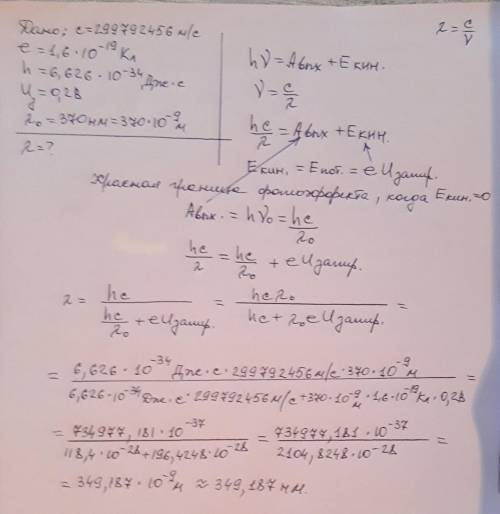 Дано; c=299792456 м/с
e=1,6·10⁻¹⁹Кл
h=6,626·10⁻³⁴Дж·с
U_з=0,2В
λ₀=370нм=370·10⁻⁹м
λ=?
λ=c/ν
hν=Aвых+Eкин.
ν=c/λ
hc/λ=Aвых+Eкин.
Eкин.=Eпот.=eUзапир.
Красная граница фотоэффекта, когда Eкин.=0
Aвых.=hν₀=hc/λ₀
hc/λ=hc/λ₀+eUзапир.
λ=hc/(hc/λ₀+eUзапир.)=hcλ₀/(hc+λ₀eUзапир.)=
=6,626·10⁻³⁴Дж·с·299792456м/с·370·10⁻⁹м/(6,626·10⁻³⁴Дж·с·299792456м/с+370·10⁻⁹м·1,6·10⁻¹⁹Кл·0,2В)=
=734977,181·10⁻³⁷/(118,4·10⁻²⁸+196,4248·10⁻²⁸)=734977,181·10⁻³⁷/2104,8248·10⁻²⁸=
=349,187·10⁻⁹м≈349,187нм.